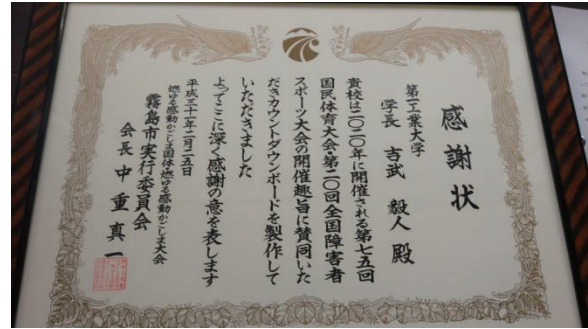 感謝状
第一工業大学
学長 吉武 毅人 殿
貴校は二〇二〇年に開催される第七五回
国民体育大会・第二〇回全国障害者
スポーツ大会の開催趣旨に賛同いた
だきカウントダウンボードを製作して
いただきました
よってここに深く感謝の意を表します
平成三十一年二月二五日
燃ゆる感動かごしま国体・燃ゆる感動かごしま大会
霧島市実行委員会
会長 中重真一